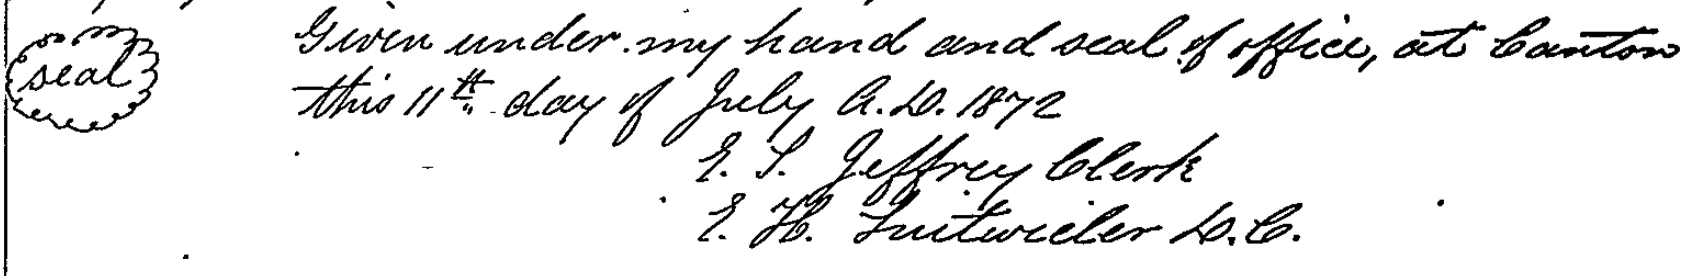 Given under my hand and seal of office, at Canton
seal
this 11th day of July A.D. 1872
E. S. Jeffrey Clerk
E. H. Luitwieler D.C.